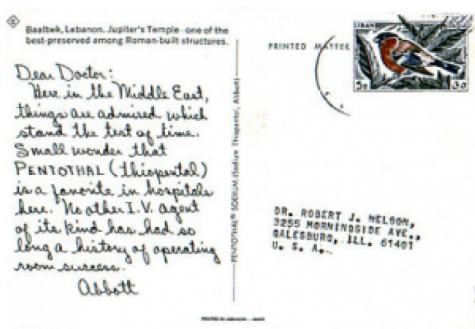 ©
Baalbek, Lebanon. Jupiter's Temple - one of the
best-preserved among Roman-built structures.
Dear Doctor:
Here in the Middle East,
things are admired which
stand the test of time.
Small wonder that
PENTOTHAL (thiopental)
is a favorite in hospitals
here. No other I.V. agent
of its kind has had so
long a history of operating
room success.
Abbott
PENTOTHAL® SODIUM (Sodium Thiopental, Abbott)
PRINTED MATTER
LIBAN
5P
DR. ROBERT J. NELSON,
3255 MORNINGSIDE AVE.,
GALESBURG, ILL. 61401
U. S. A.
PRINTED IN LEBANON